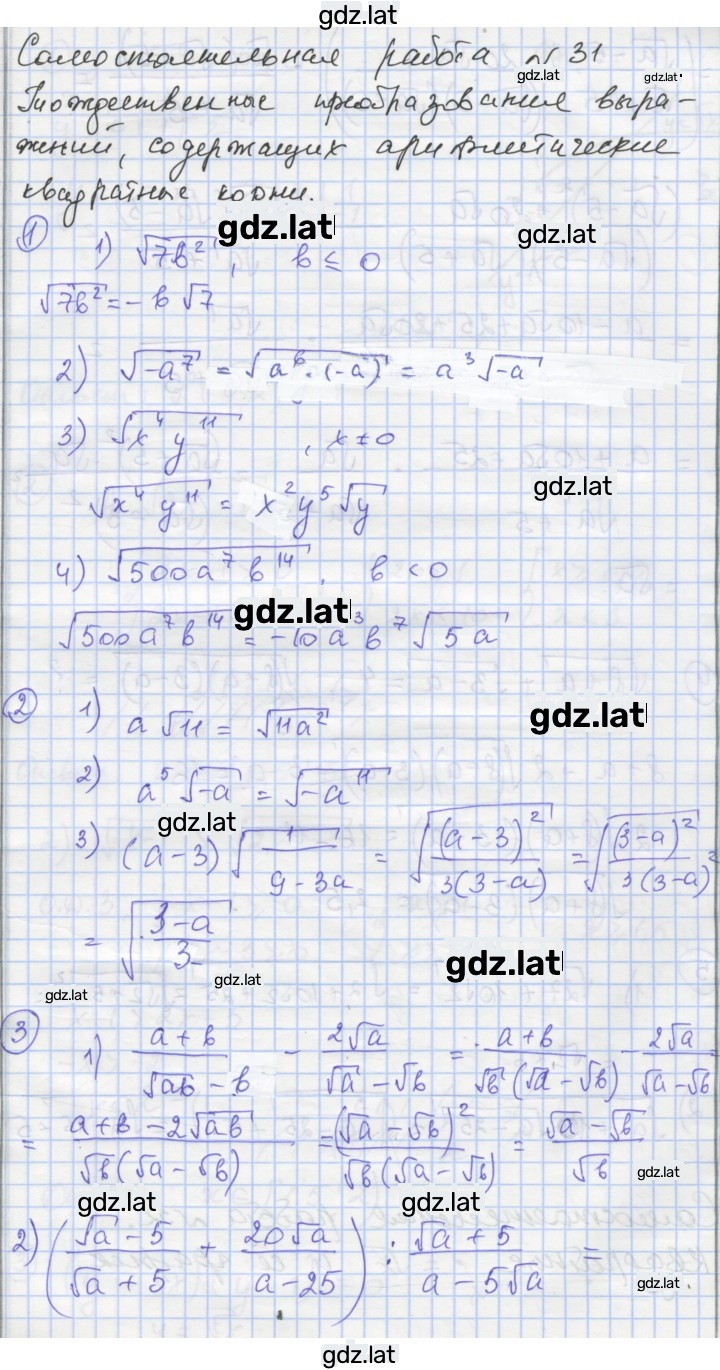 gdz.lat
Самостоятельная работа №31
gdz.lat gdz.lat
Тождественные преобразования выра-
жений, содержащих арифметические
квадратные корни.
gdz.lat gdz.lat
① 1) √(7b²), b ≤ 0
√(7b²) = -b√7
2) √(-a⁷) = √(a⁶·(-a)) = a³√(-a)
3) √(x⁴y¹¹), x ≠ 0
√(x⁴y¹¹) = x²y⁵√y
gdz.lat
4) √(500a⁷b¹⁴), b < 0
gdz.lat
√(500a⁷b¹⁴) = -10a³b⁷√(5a)
② 1) a√11 = √(11a²)
gdz.lat
2) a⁵√(-a) = √(-a¹¹)
gdz.lat
3) (a-3)√(1/(9-3a)) = √((a-3)²/(3(3-a))) = √((3-a)²/(3(3-a)²
= √((3-a)/3)
gdz.lat
gdz.lat gdz.lat
③ 1) (a+b)/(√(ab)-b) - 2√a/(√a-√b) = (a+b)/(√b(√a-√b)) - 2√a/(√a-√b)
= (a+b-2√(ab))/(√b(√a-√b)) = (√a-√b)²/(√b(√a-√b)) = (√a-√b)/√b
gdz.lat
gdz.lat gdz.lat
2) ((√a-5)/(√a+5) + 20√a/(a-25)) : (√a+5)/(a-5√a) =
gdz.lat
gdz.lat